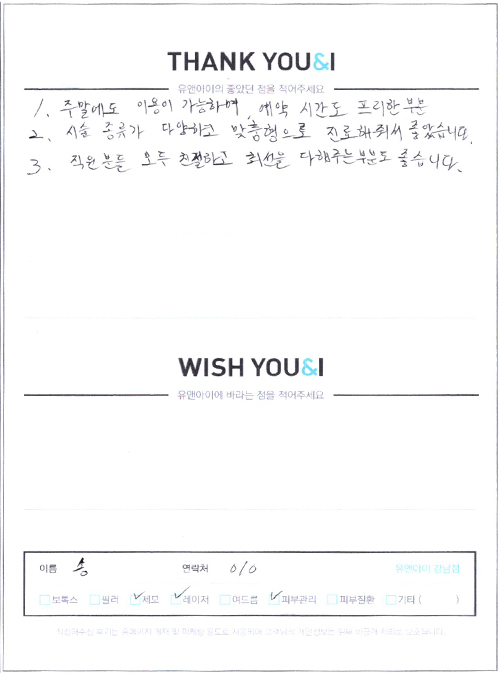 THANK YOU&I
유앤아이의 좋았던 점을 적어주세요
1. 주말에도 이용이 가능하며, 예약 시간도 프리한 부분
2. 시술 종류가 다양하고 맞춤형으로 진료해줘서 좋았습니다.
3. 직원분들 모두 친절하고 최선을 다해주는부분도 좋습니다.
WISH YOU&I
유앤아이에 바라는 점을 적어주세요
이름 송 연락처 010 유앤아이 강남점
보톡스 필러 ✓제모 ✓레이저 여드름 ✓피부관리 피부질환 기타 ( )